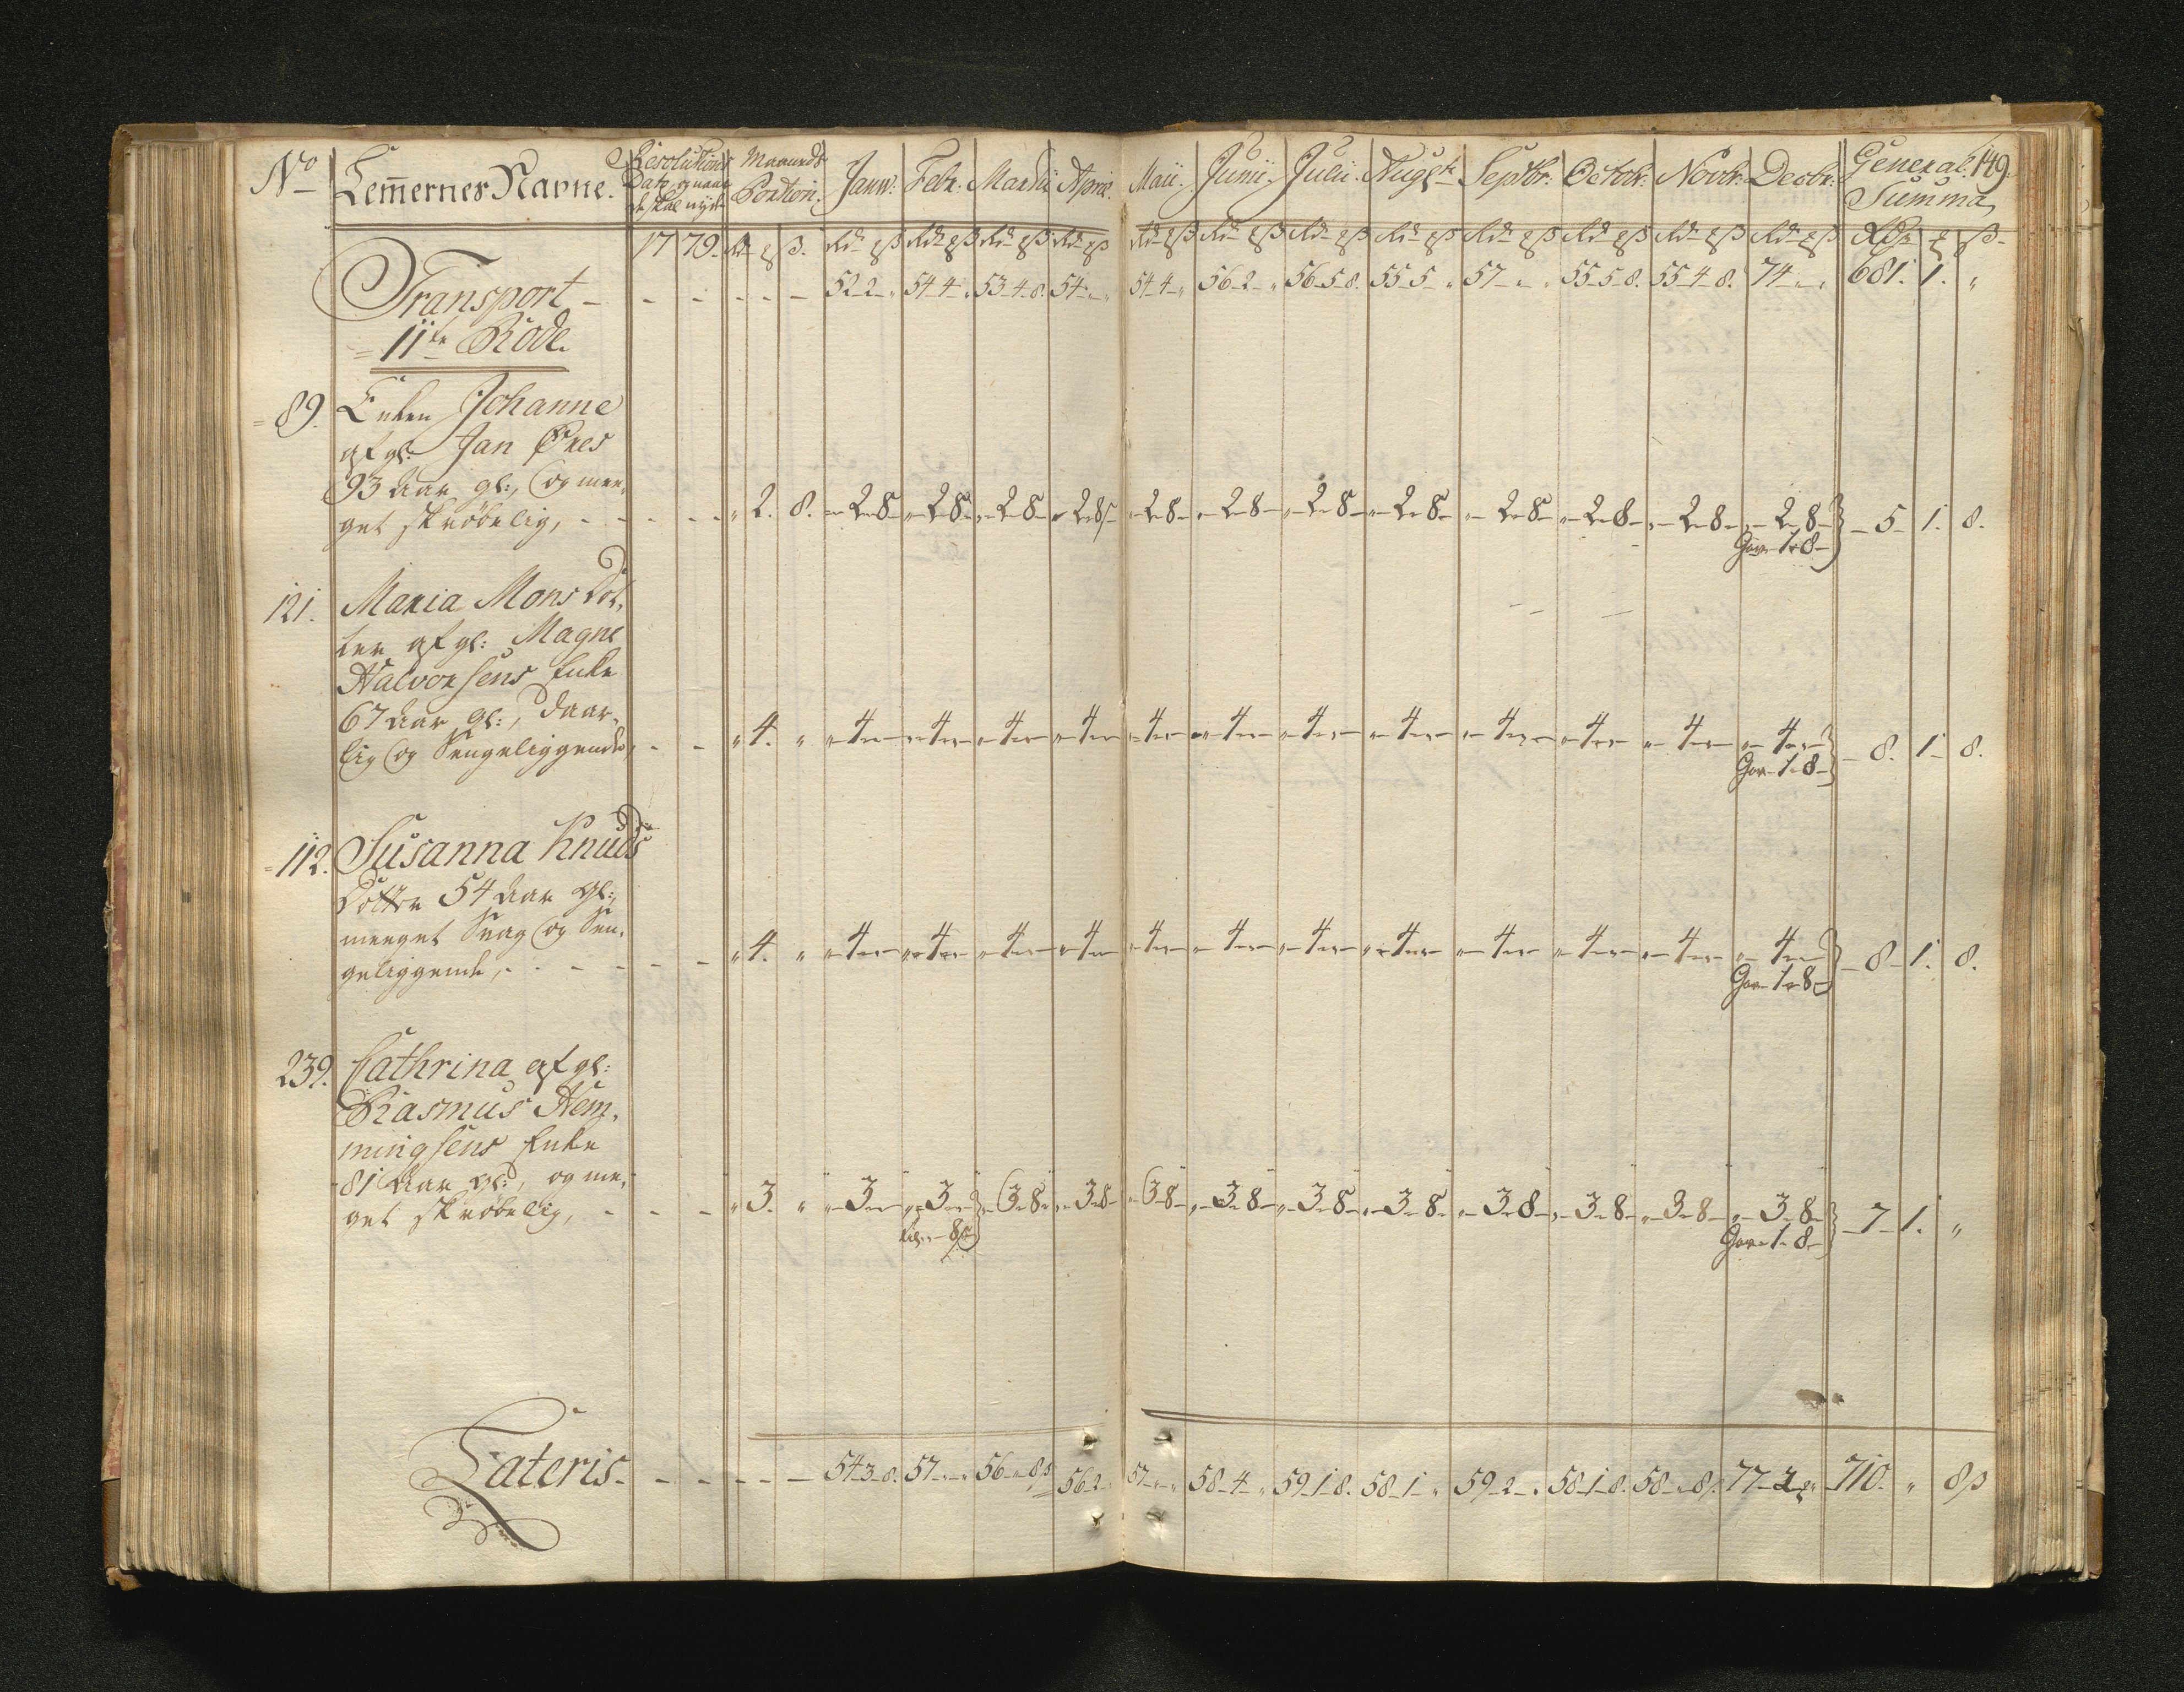 No Lem̄ernes Navne. Resolutions Dato og naar de skal nyde Maaneds Portion. Janu: Febr: Martii Aprill: Maii. Junii. Julii. Augst. Septbr: Octob: Novbr: Decbr: General Summa 149.
17 79. Rd ß. Rd ß Rd ß Rd ß Rd ß Rd ß Rd ß Rd ß Rd ß Rd ß Rd ß Rd ß Rd ß Rd ß
Transport - - - - - - 52-2-„ 54-4-„ 53-4-8. 54-„-„ 54-4-„ 56-2-„ 56-5-8. 55-5-„ 57-„-„ 55-5-8. 55-4-8. 74-„-„ 681. 1. „
11te Rode.
89. Enken Johanne
af gl: Jan Øres
93 Aar gl:, og mee-
get skrøbelig, - - - - „ 2. 8. „-2-8 „-2-8 „-2-8 „-2-8ß „-2-8 „-2-8 „-2-8 „-2-8 „-2-8 „-2-8 „-2-8 „-2-8 } 5. 1. 8.
Gav-1-8
121. Maria Mons Dot-
ter af gl: Magne
Halvorsens Enke
67 Aar gl:, daar-
lig og Sengeliggende, - - „ 4. „ „-4-„ „-4-„ „-4-„ „-4-„ „-4-„ „-4-„ „-4-„ „-4-„ „-4-„ „-4-„ „-4-„ „-4-„ } 8. 1. 8.
Gav-1-8
112. Susanna Knuds
Dotter 54 Aar gl:,
meeget Svag og Sen-
geliggende, - - - - - „ 4. „ „-4-„ „-4-„ „-4-„ „-4-„ „-4-„ „-4-„ „-4-„ „-4-„ „-4-„ „-4-„ „-4-„ „-4-„ } 8. 1. 8.
Gav-1-8
239. Cathrina af gl:
Rasmus Hem-
mingsens Enke
81 Aar gl:, og me-
get skrøbelig, - - - „ 3. „ „-3-„ „-3-„ } „-3-8 „-3-8 „-3-8 „-3-8 „-3-8 „-3-8 „-3-8 „-3-8 „-3-8 „-3-8 } 7. 1. „
8ß Gav-1-8
Lateris - - - - - 54-3-8. 57-„-„ 56-„-8ß 56-2-„ 57-„-„ 58-4-„ 59-1-8. 58-1-„ 59-2-„ 58-1-8. 58-„-8ß 77-2-„ 710. „ 8ß